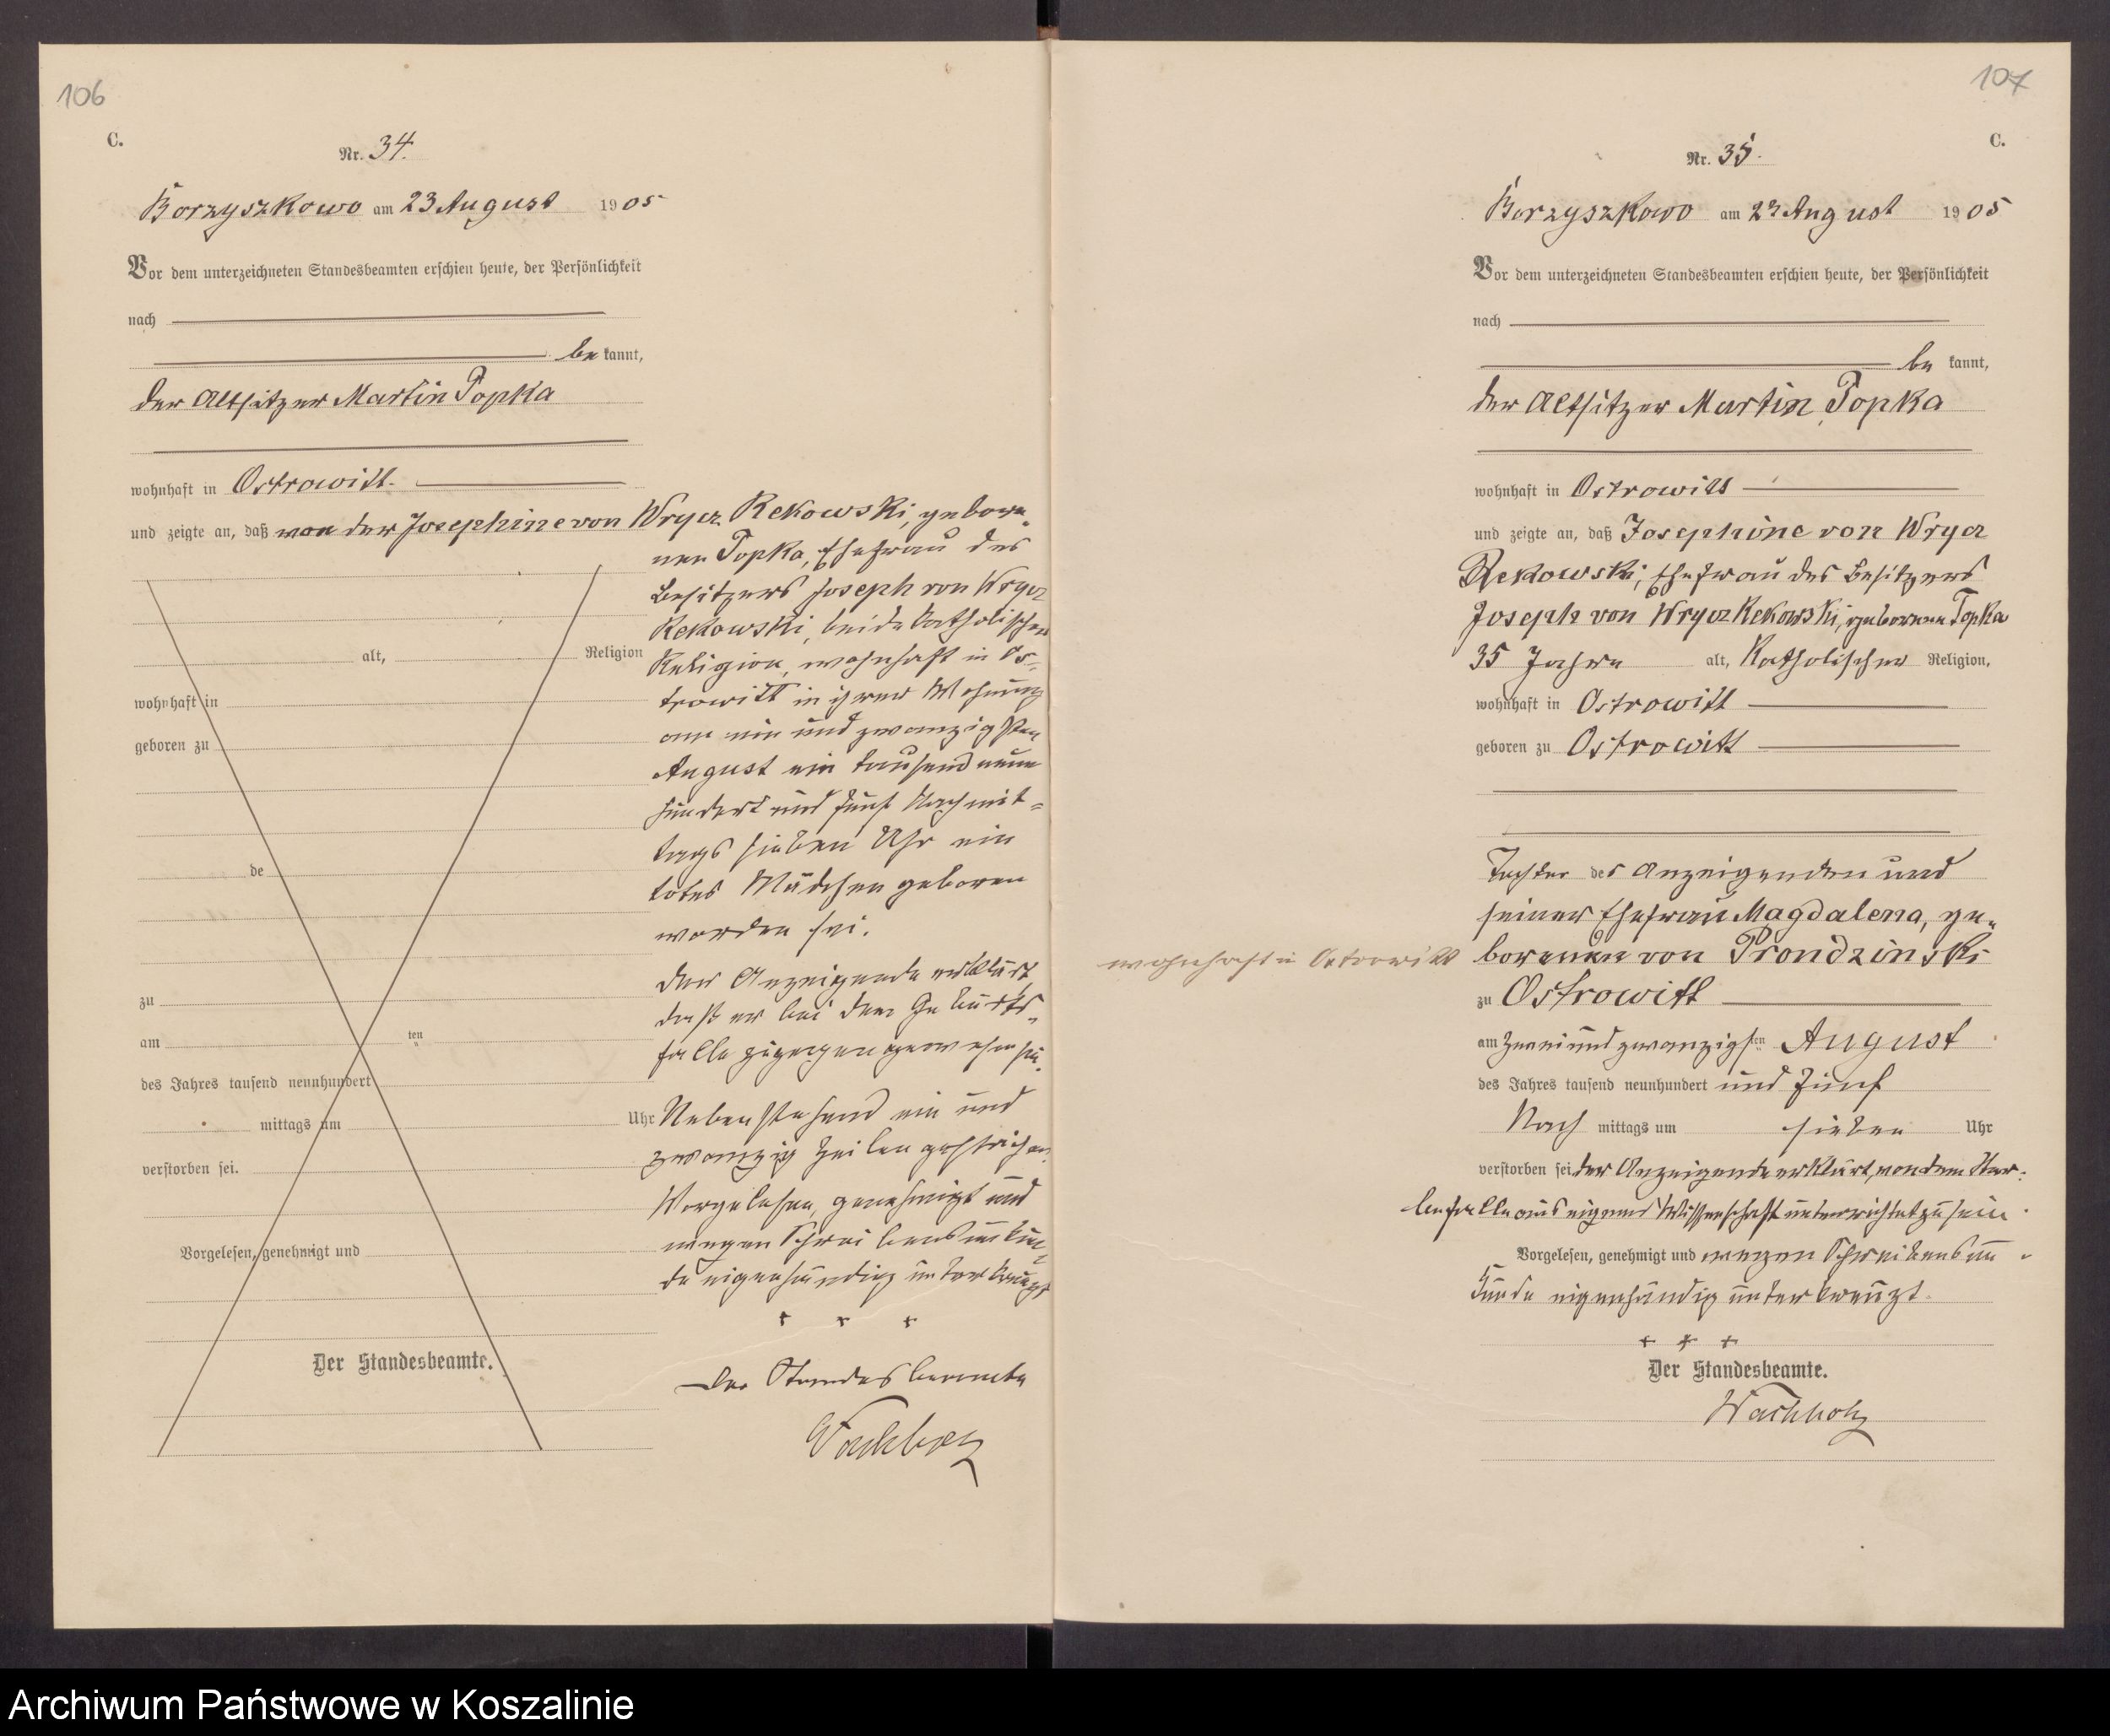 106
C.
Nr. 34.
Borzyszkowo am 23 August 1905
Vor dem unterzeichneten Standesbeamten erschien heute, der Persönlichkeit
nach
be kannt,
der Altsitzer Martin Topka
wohnhaft in Ostrowitt.
und zeigte an, daß von der Josephine von Wrycz Rekowski, gebore-
nen Topka, Ehefrau des
Besitzers Joseph von Wrycz
Rekowski, beide katholischer
alt, Religion Religion, wohnhaft in Os-
wohnhaft in trowitt in ihrer Wohnung
am ein und zwanzigsten
geboren zu
August ein tausend neun
hundert und fünf Nachmit-
tags sieben Uhr ein
de totes Mädchen geboren
worden sei.
Der Anzeigende erklärt,
zu daß er bei dem Geburts-
am ten falle zugegen gewesen sei.
des Jahres tausend neunhundert
mittags um Uhr Nebenstehend ein und
verstorben sei. zwanzig Zeilen gestrichen.
Vorgelesen, genehmigt und
Vorgelesen, genehmigt und wegen Schreibensunkun-
de eigenhändig unterkreuzt
+ + +
Der Standesbeamte.
Der Standesbeamte
Wachholz
107
C.
Nr. 35.
Borzyszkowo am 23 August 1905
Vor dem unterzeichneten Standesbeamten erschien heute, der Persönlichkeit
nach
be kannt,
der Altsitzer Martin Topka
wohnhaft in Ostrowitt
und zeigte an, daß Josephine von Wrycz
Rekowski, Ehefrau des Besitzers
Joseph von Wrycz Rekowski, geborenen Topka
35 Jahre alt, Katholischer Religion,
wohnhaft in Ostrowitt
geboren zu Ostrowitt
Tochter des Anzeigenden und
seiner Ehefrau Magdalena, ge-
wohnhaft in Ostrowitt borenen von Prondzinski
zu Ostrowitt
am zweiundzwanzigsten August
des Jahres tausend neunhundert und fünf
Nach mittags um sieben Uhr
verstorben sei. Der Anzeigende erklärt, von dem Ster-
befalle aus eigener Wissenschaft unterrichtet zu sein.
Vorgelesen, genehmigt und wegen Schreibensun-
kunde eigenhändig unterkreuzt.
+ + +
Der Standesbeamte.
Wachholz
Archiwum Państwowe w Koszalinie